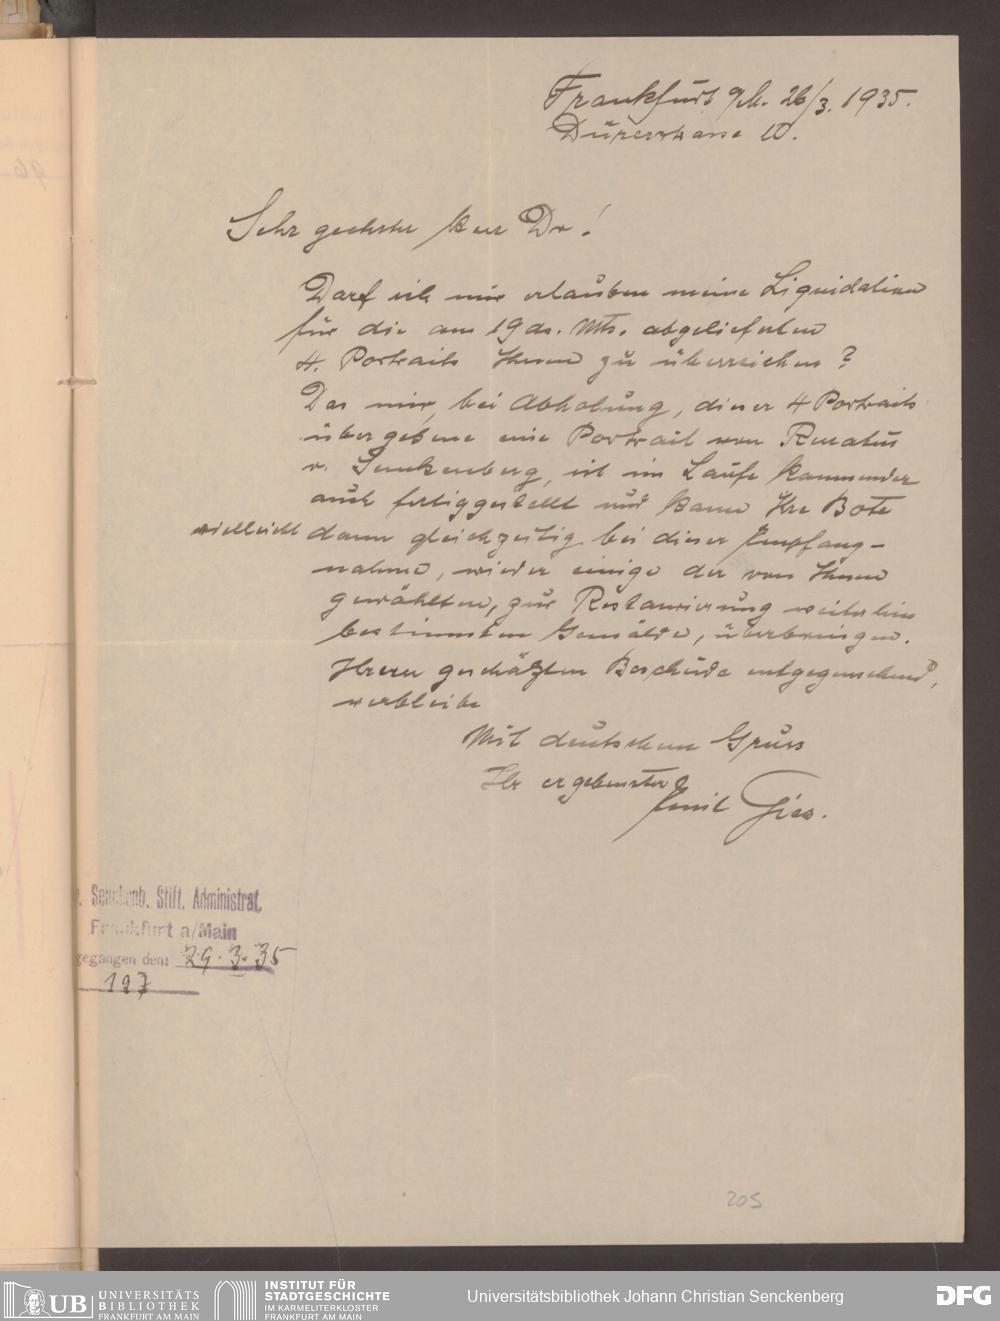 Frankfurt a/M. 26/3. 1935.
Dürerstrasse 10.
Sehr geehrter Herr Dr!
Darf ich mir erlauben meine Liquidation
für die am 19 ds. Mts. abgelieferten
4. Portraits Ihnen zu überreichen?
Das mir, bei Abholung, dieser 4 Portraits
übergebene eine Portrait von Renatus
v. Senckenberg, ist im Laufe kommender
auch fertiggestellt und kann Ihr Bote
vielleicht dann gleichzeitig bei dieser Empfang-
nahme, wieder einige der von Ihnen
gewählten, zur Restaurierung weiterhin
bestimmten Gemälde, überbringen.
Ihrem geschätzten Bescheide entgegensehend,
verbleibe
Mit deutschem Gruss
Ihr ergebenster
Emil Gies.
. Senckenb. Stift. Administrat.
Frankfurt a/Main
gegangen den: 29. 3. 35
197
205
UB UNIVERSITÄTS
BIBLIOTHEK
FRANKFURT AM MAIN
INSTITUT FÜR
STADTGESCHICHTE
IM KARMELITERKLOSTER
FRANKFURT AM MAIN
Universitätsbibliothek Johann Christian Senckenberg
DFG